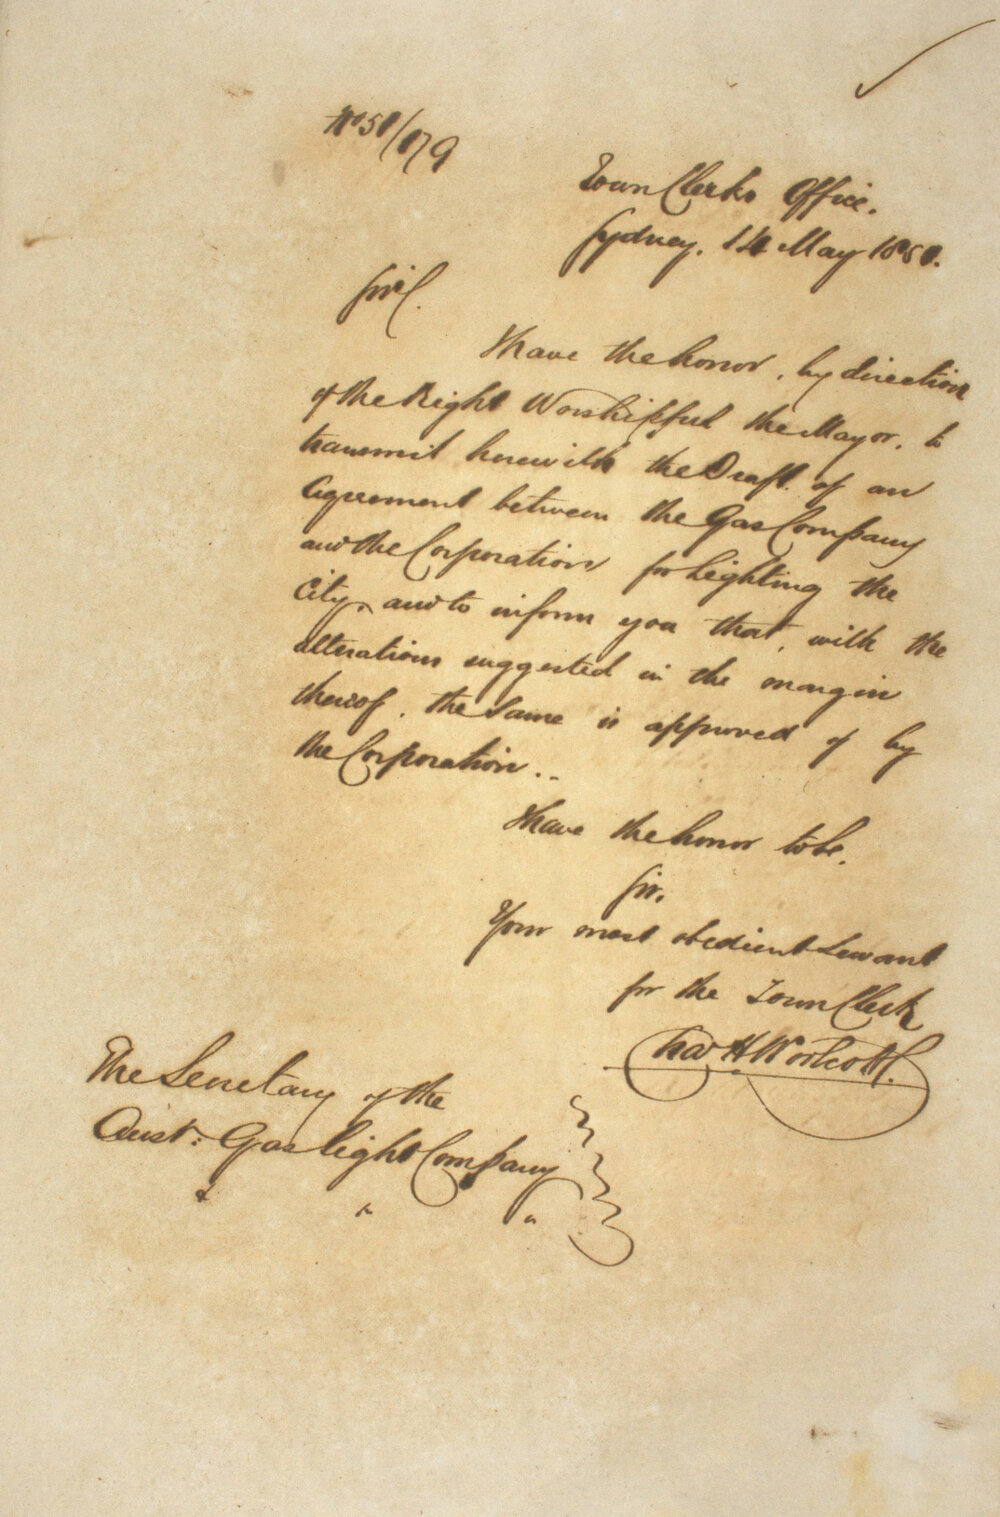 No 51/179
Town Clerks Office.
Sydney. 14 May 1851.
Sir,
I have the honor, by direction
of the Right Worshipful the Mayor, to
transmit herewith the Draft of an
Agreement between the Gas Company
and the Corporation for Lighting the
City, and to inform you that, with the
alterations suggested in the margin
thereof, the same is approved of by
the Corporation..
I have the honor to be,
Sir,
Your most obedient Servant
for the Town Clerk
Chas H Woolcott.
The Secretary of the
Aust: Gas Light Company